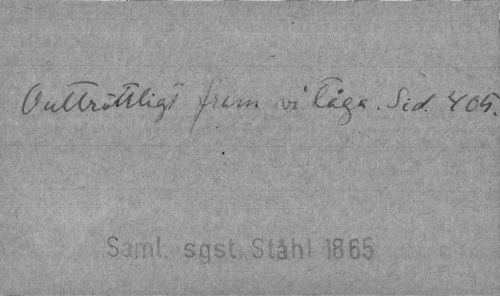 Outtröttligt fram vi tåga. Sid. 405.
Saml. sgst. Ståhl 1865